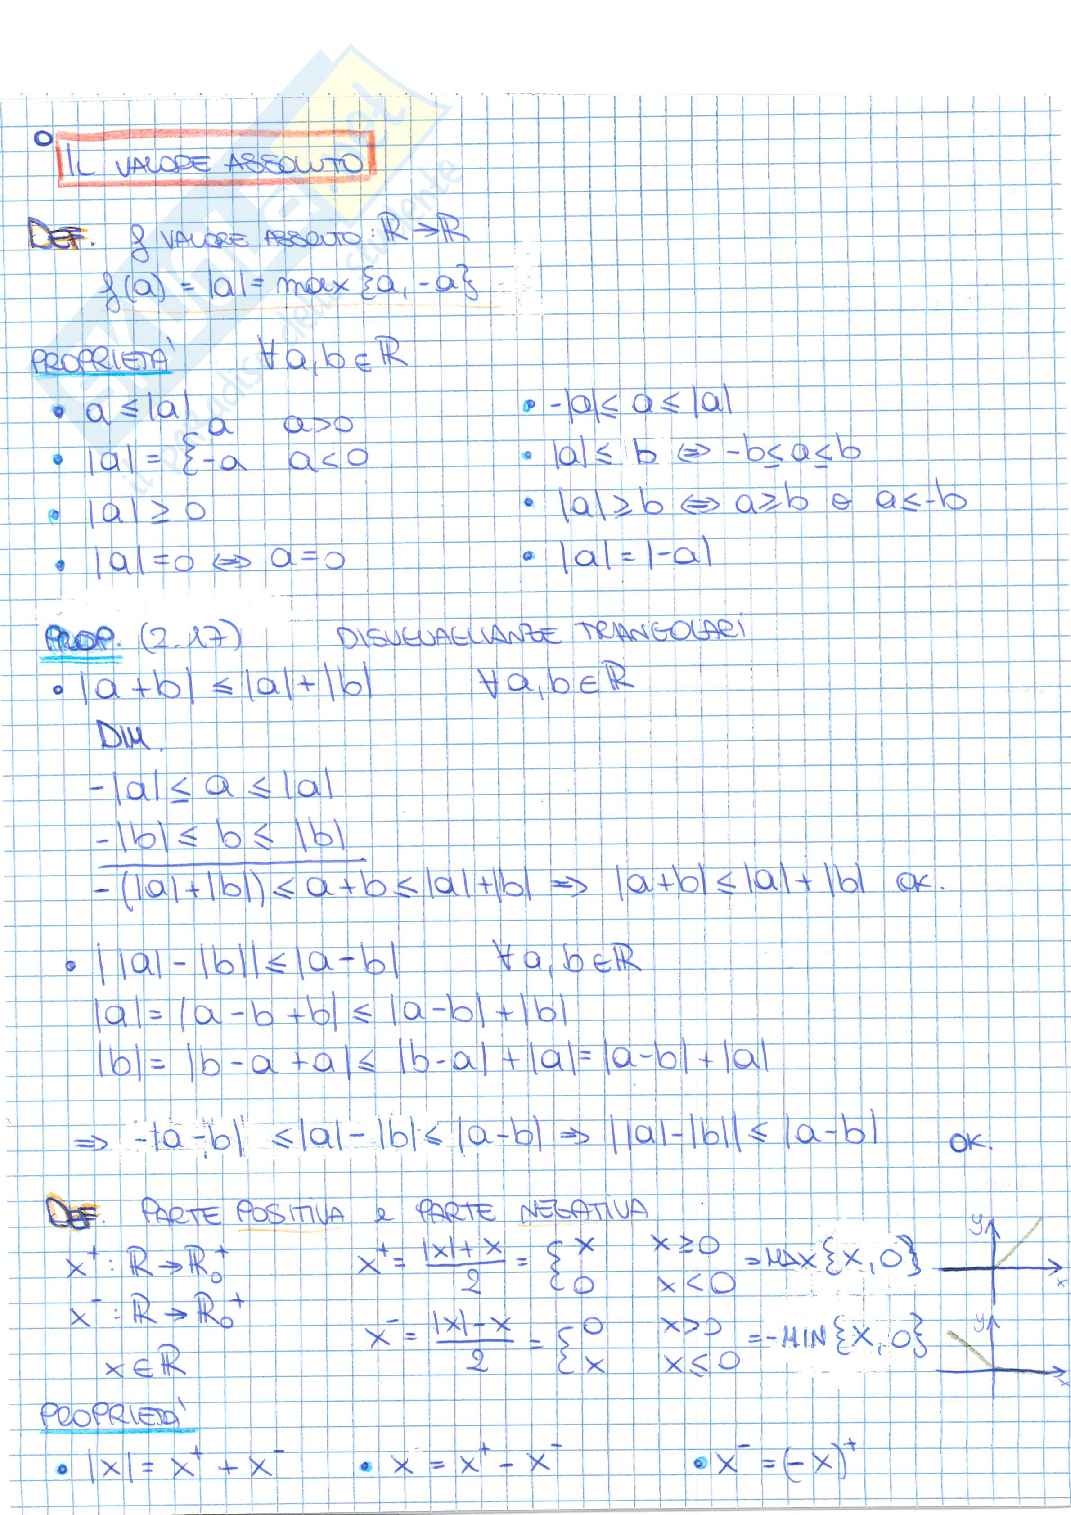 IL VALORE ASSOLUTO
DEF. f VALORE ASSOLUTO: ℝ→ℝ
f(a) = |a| = max {a, -a}
PROPRIETÀ ∀ a,b ∈ ℝ
• a ≤ |a|
• |a| = { a a>0
-a a<0
• |a| ≥ 0
• |a|=0 ⇔ a=0
• -|a| ≤ a ≤ |a|
• |a| ≤ b ⇔ -b ≤ a ≤ b
• |a| ≥ b ⇔ a ≥ b o a ≤ -b
• |a| = |-a|
PROP. (2.17) DISUGUAGLIANZE TRIANGOLARI
• |a+b| ≤ |a|+|b| ∀ a,b ∈ ℝ
DIM.
-|a| ≤ a ≤ |a|
-|b| ≤ b ≤ |b|
-(|a|+|b|) ≤ a+b ≤ |a|+|b| ⇒ |a+b| ≤ |a|+|b| OK.
• ||a|-|b|| ≤ |a-b| ∀ a,b ∈ ℝ
|a| = |a-b+b| ≤ |a-b|+|b|
|b| = |b-a+a| ≤ |b-a|+|a| = |a-b|+|a|
⇒ -|a-b| ≤ |a|-|b| ≤ |a-b| ⇒ ||a|-|b|| ≤ |a-b| OK.
DEF. PARTE POSITIVA e PARTE NEGATIVA
x⁺: ℝ→ℝ₀⁺ x⁺ = (|x|+x)/2 = { x x≥0
0 x<0 = MAX {x, 0} y x
x⁻: ℝ→ℝ₀⁺ x⁻ = (|x|-x)/2 = { 0 x>0
x x≤0 = -MIN {x, 0} y x
x ∈ ℝ
PROPRIETÀ
• |x| = x⁺ + x⁻ • x = x⁺ - x⁻ • x⁻ = (-x)⁺